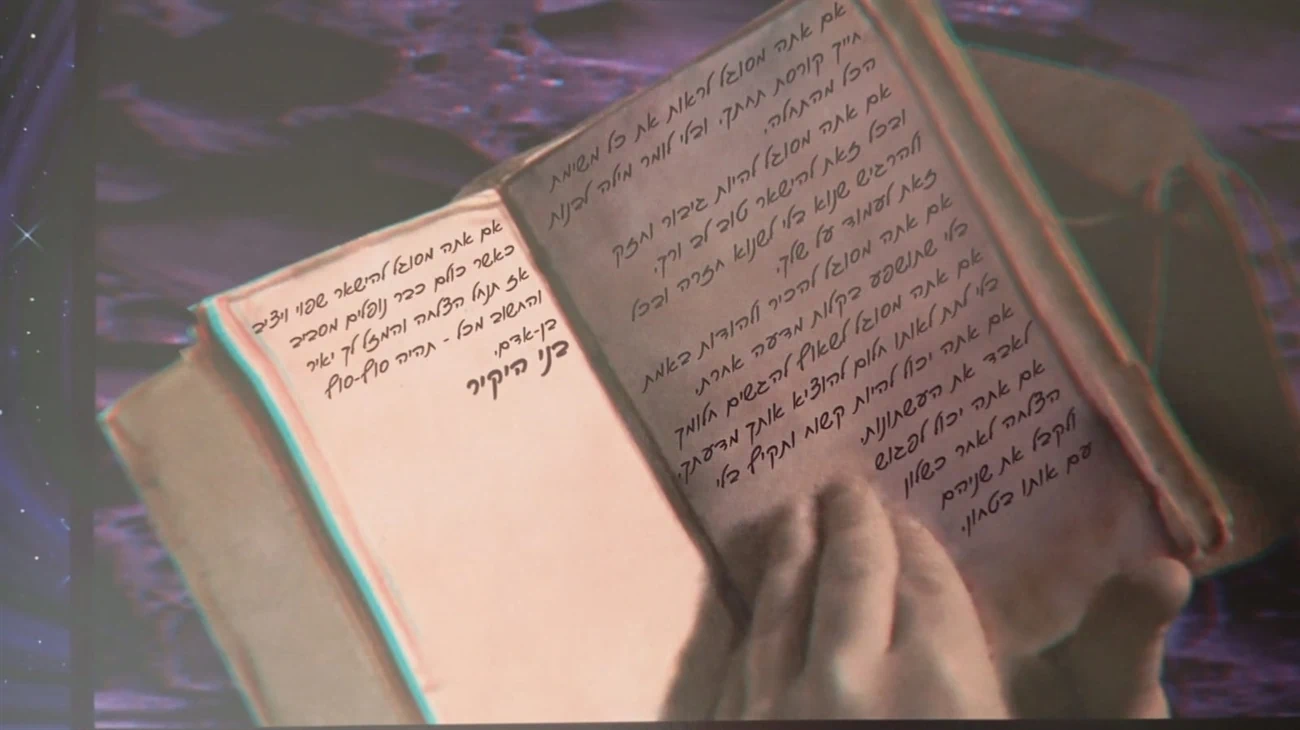 אם אתה מסוגל לראות את כל משימת
חייך קורסת תחתך, ובלי לומר מילה לבנות
הכל מהתחלה,
אם אתה מסוגל להיות גיבור וחזק
ובכל זאת להישאר טוב לב ורך,
ולהרגיש שנוא בלי לשנוא חזרה ובכל
זאת לעמוד על שלך,
אם אתה מסוגל להכיר ולהודות באמת
בלי שתושפע בקלות מדעה אחרת,
אם אתה מסוגל לשאוף להגשים חלומך
בלי לתת לאותו חלום להוציא אותך מדעתך,
אם אתה יכול להיות קשוח ותקיף בלי
לאבד את העשתונות,
אם אתה יכול לפגוש
הצלחה לאחר כשלון
ולקבל את שניהם
עם אותו בטחון,
אם אתה מסוגל להישאר שפוי ויציב
כאשר כולם כבר נופלים מסביב
אז תנחל הצלחה והמזל לך יאיר
והחשוב מכל - תהיה סוף-סוף
בן-אדם,
בני היקיר